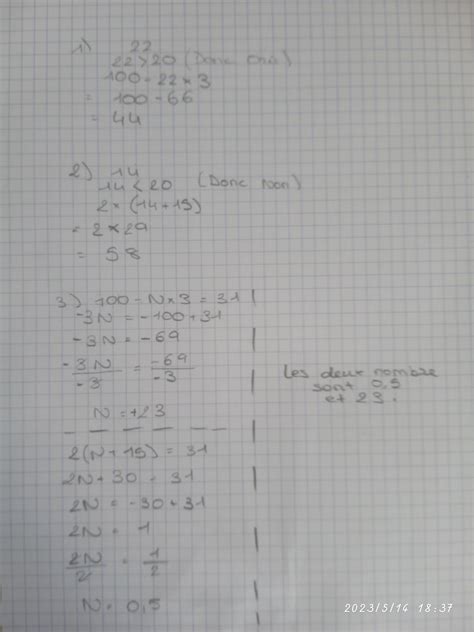 1) 22
22 > 20 (Donc oui)
100 - 22 × 3
= 100 - 66
= 44
2) 14
14 < 20 (Donc non)
2 × (14 + 15)
= 2 × 29
= 58
3) 100 - N × 3 = 31
-3N = -100 + 31
-3N = -69
-3N/-3 = -69/-3
N = +23
2(N + 15) = 31
2N + 30 = 31
2N = -30 + 31
2N = 1
2N/2 = 1/2
N = 0,5
Les deux nombre
sont 0,5
et 23.
2023/5/14 18:37